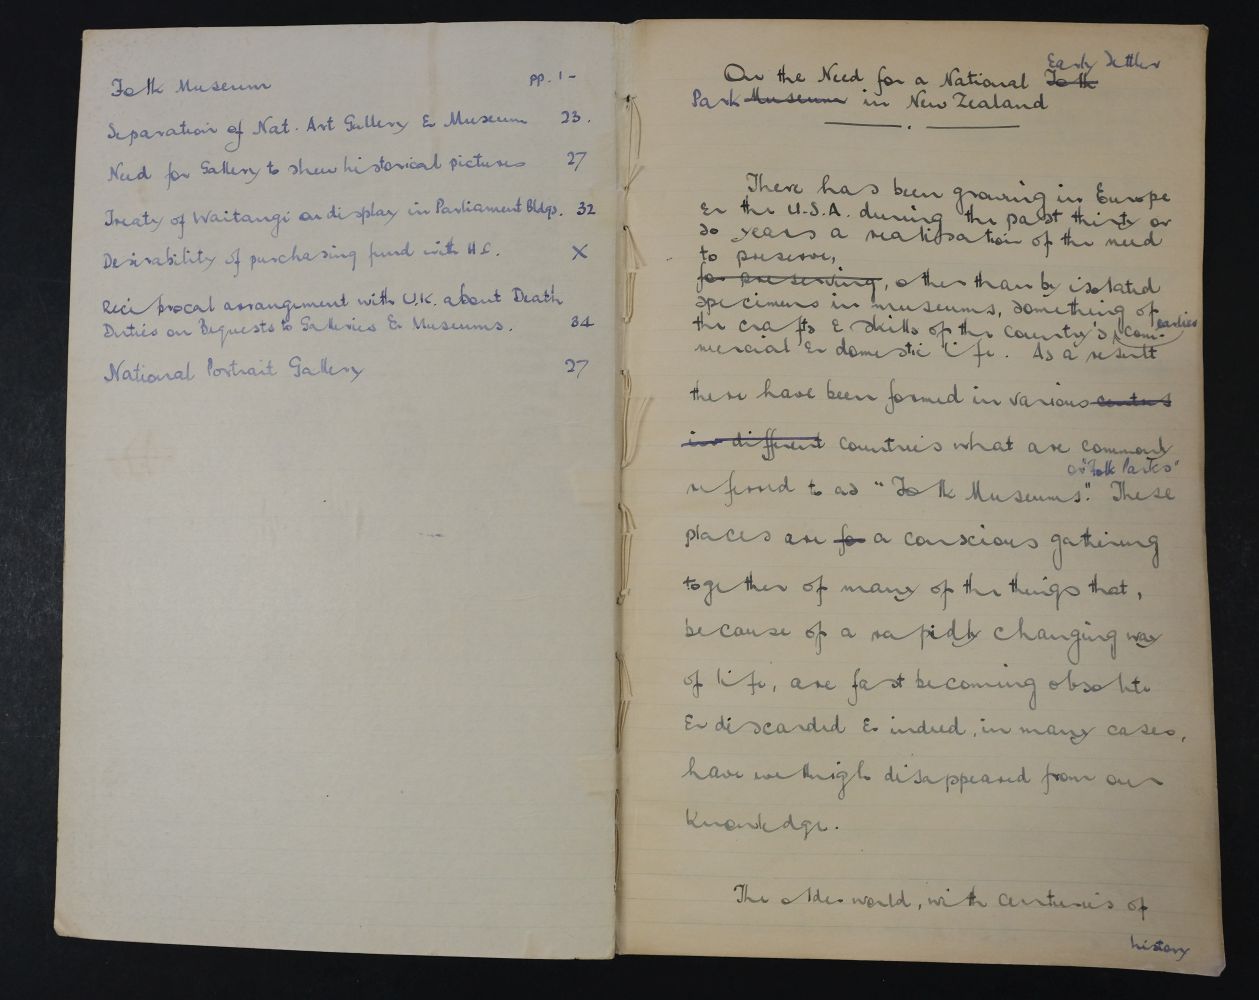 Folk Museum pp. 1-
Separation of Nat. Art Gallery & Museum 23.
Need for Gallery to shew historical pictures 27
Treaty of Waitangi on display in Parliament Bldgs. 32
Desirability of purchasing fund with H.C. X
Reciprocal arrangement with U.K. about Death
Duties on Bequests to Galleries & Museums. 34
National Portrait Gallery 27
Early Settler
On the Need for a National Folk
Park Museum in New Zealand
There has been growing in Europe
& the U.S.A. during the past thirty or
so years a realisation of the need
to preserve,
for preserving, other than by isolated
specimens in museums, something of
the crafts & skills of the country's earlier com-
mercial & domestic life. As a result
there have been formed in various centres
in different countries what are commonly
or "Folk Parks"
referred to as "Folk Museums". These
places are for a conscious gathering
together of many of the things that,
because of a rapidly changing way
of life, are fast becoming obsolete
& discarded & indeed, in many cases,
have well nigh disappeared from our
knowledge.
The older world, with centuries of
history